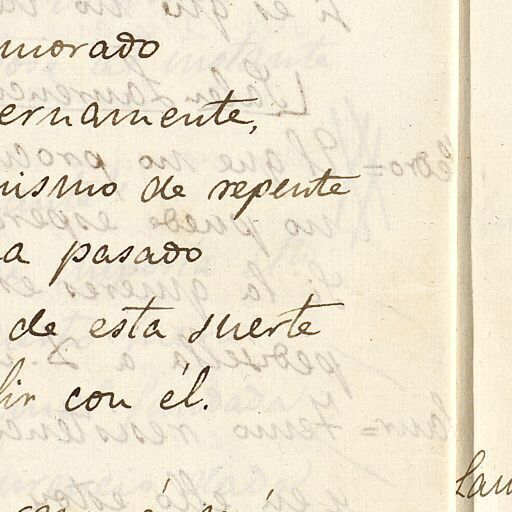 morado
ernamente,
mismo de repente
a pasado
de esta suerte
lir con él.
Lau